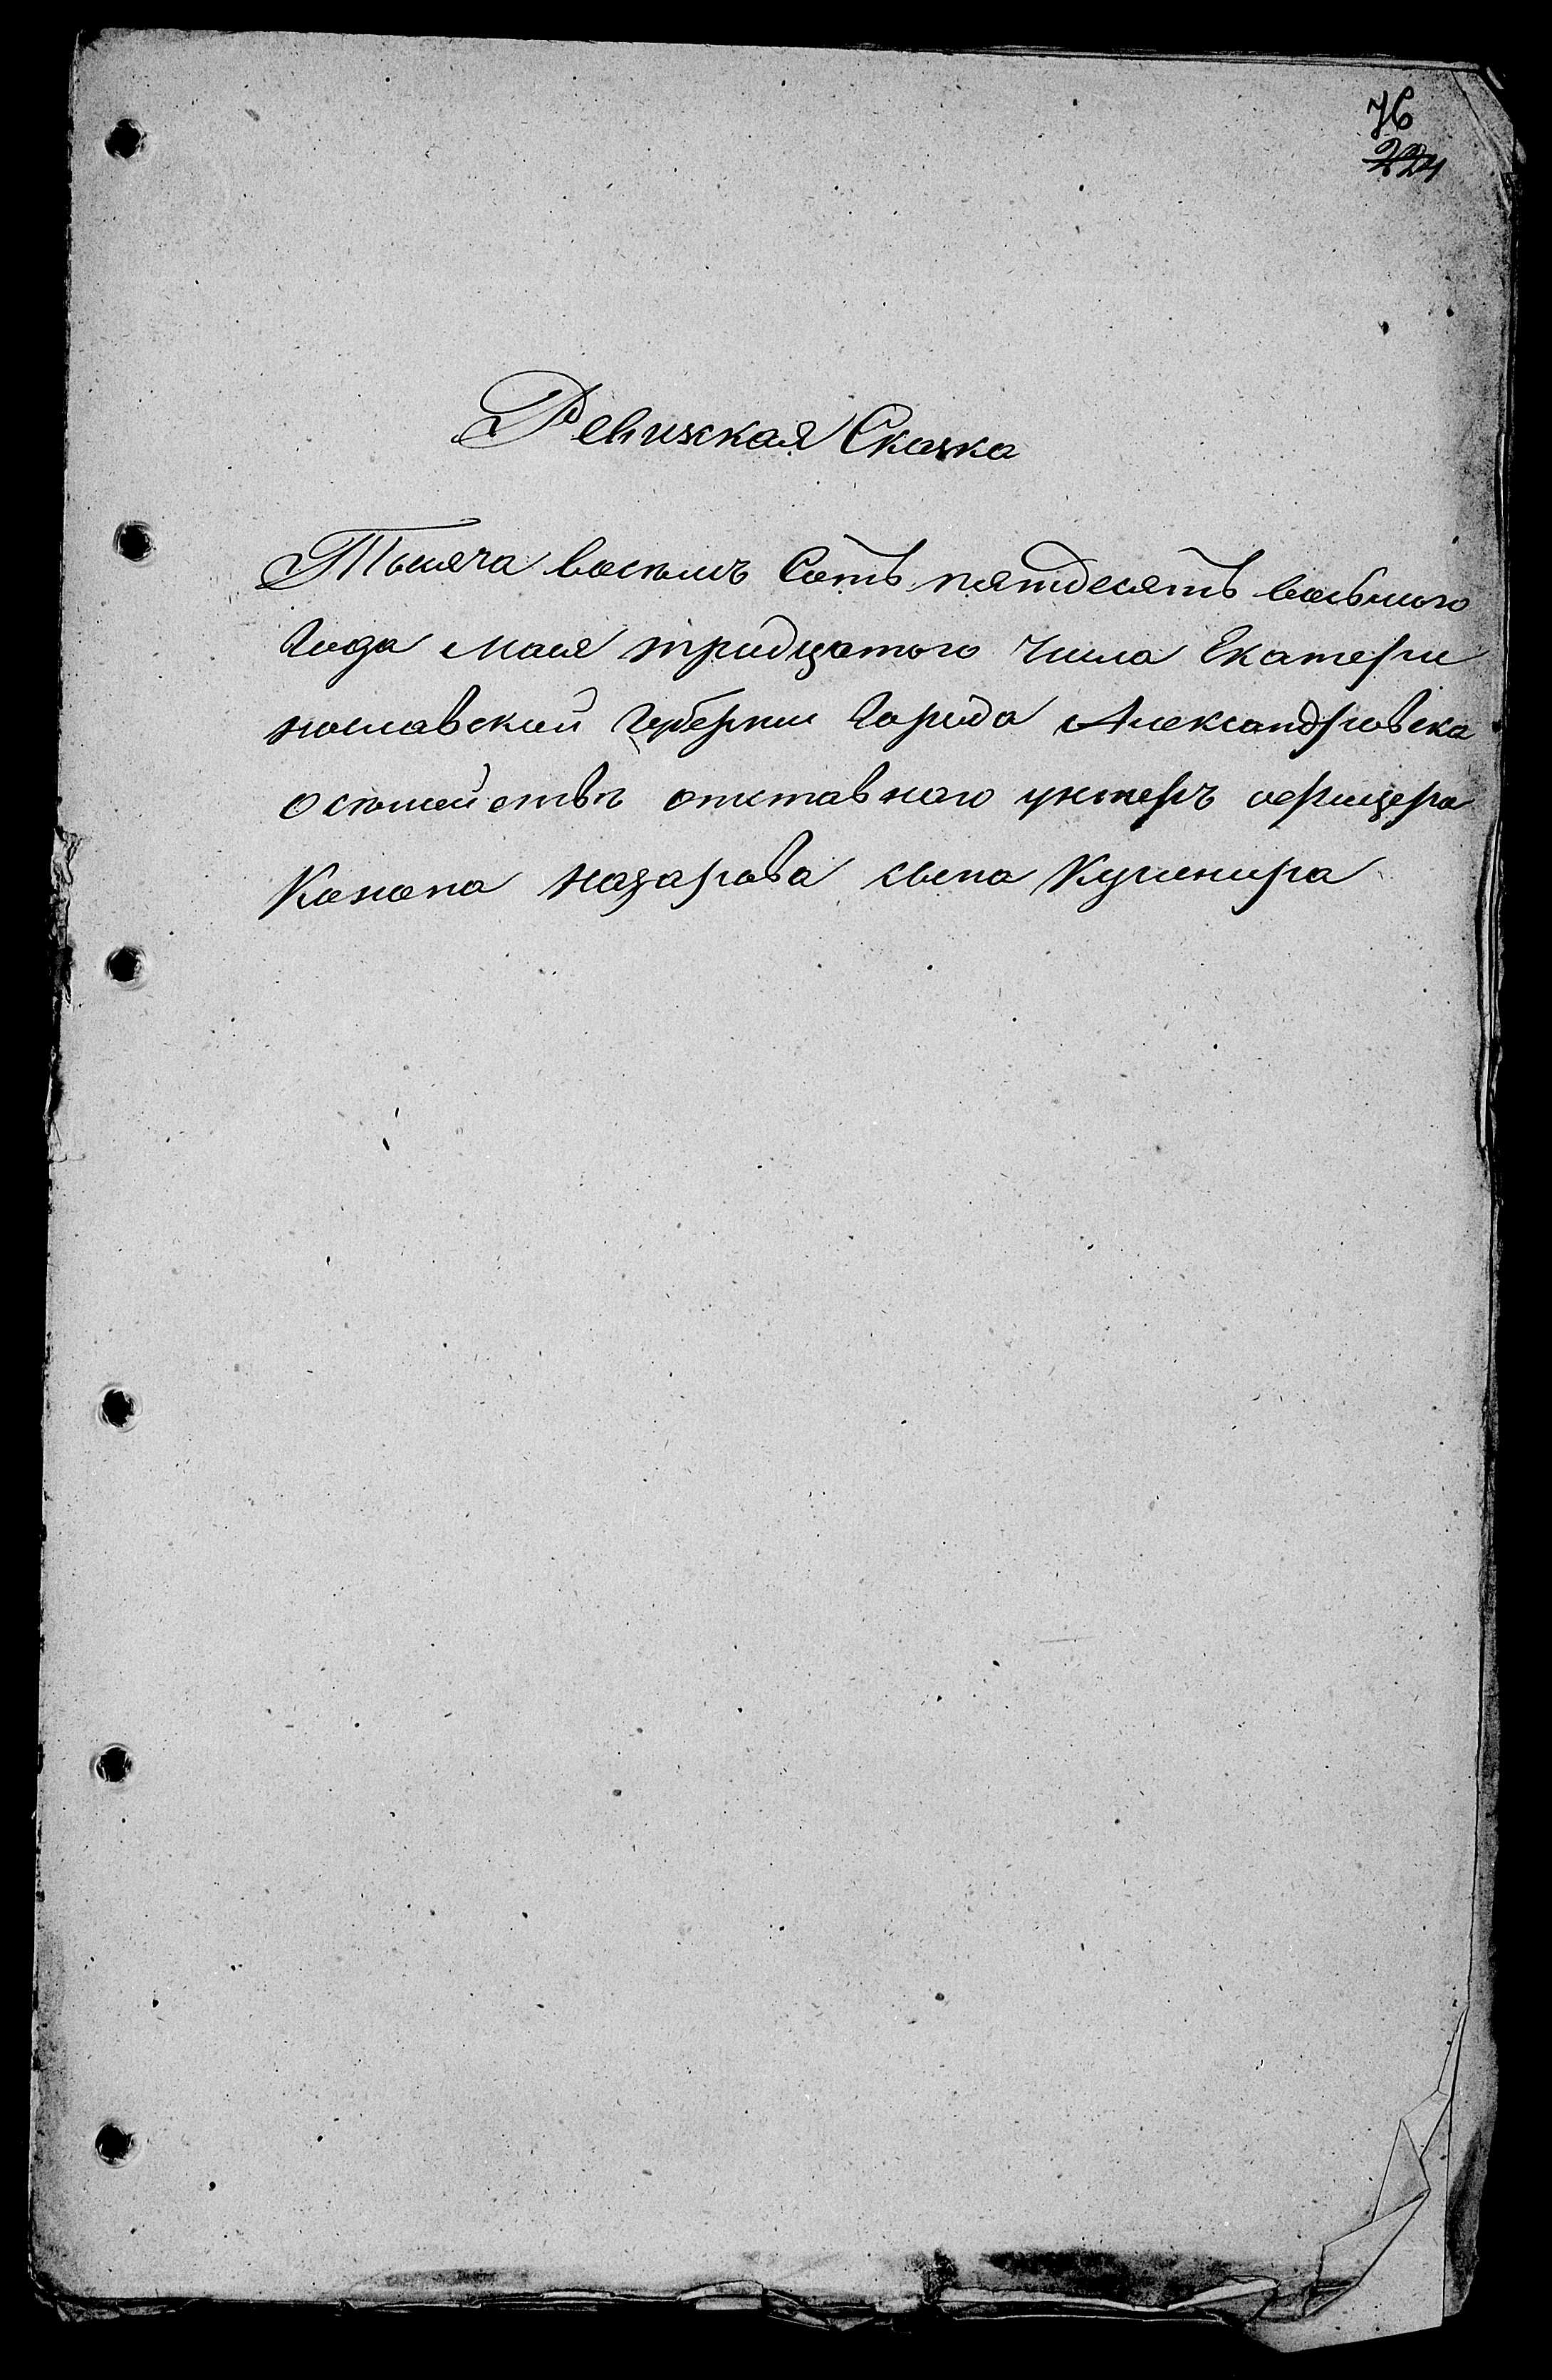 76
224
Ревизская Сказка
Тысяча восемь Сотъ пятдесятъ восьмого
Года Маия тридцатого Числа Екатери
нославской Губернии Города Александровска
осемействе отставного унтеръ офицера
Конона Назарова сына Кушнира